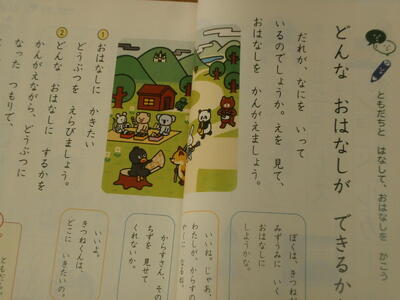 ともだちと はなして、おはなしを かこう
どんな おはなしが できるか
だれが、なにを いって
いるのでしょうか。えを 見て、
おはなしを かんがえましょう。
① おはなしに かきたい
どうぶつを えらびましょう。
② どんな おはなしに するかを
かんがえながら、どうぶつに
なった つもりで、
ぼくは、きつね
みずうみに いく
おはなしに
しようかな。
いいね。じゃあ、
わたしが、からすの
からすさん、その
ちずを 見せて
くれないか。
いいよ。
きつねくんは、
どこに いきたいの。
ともだち